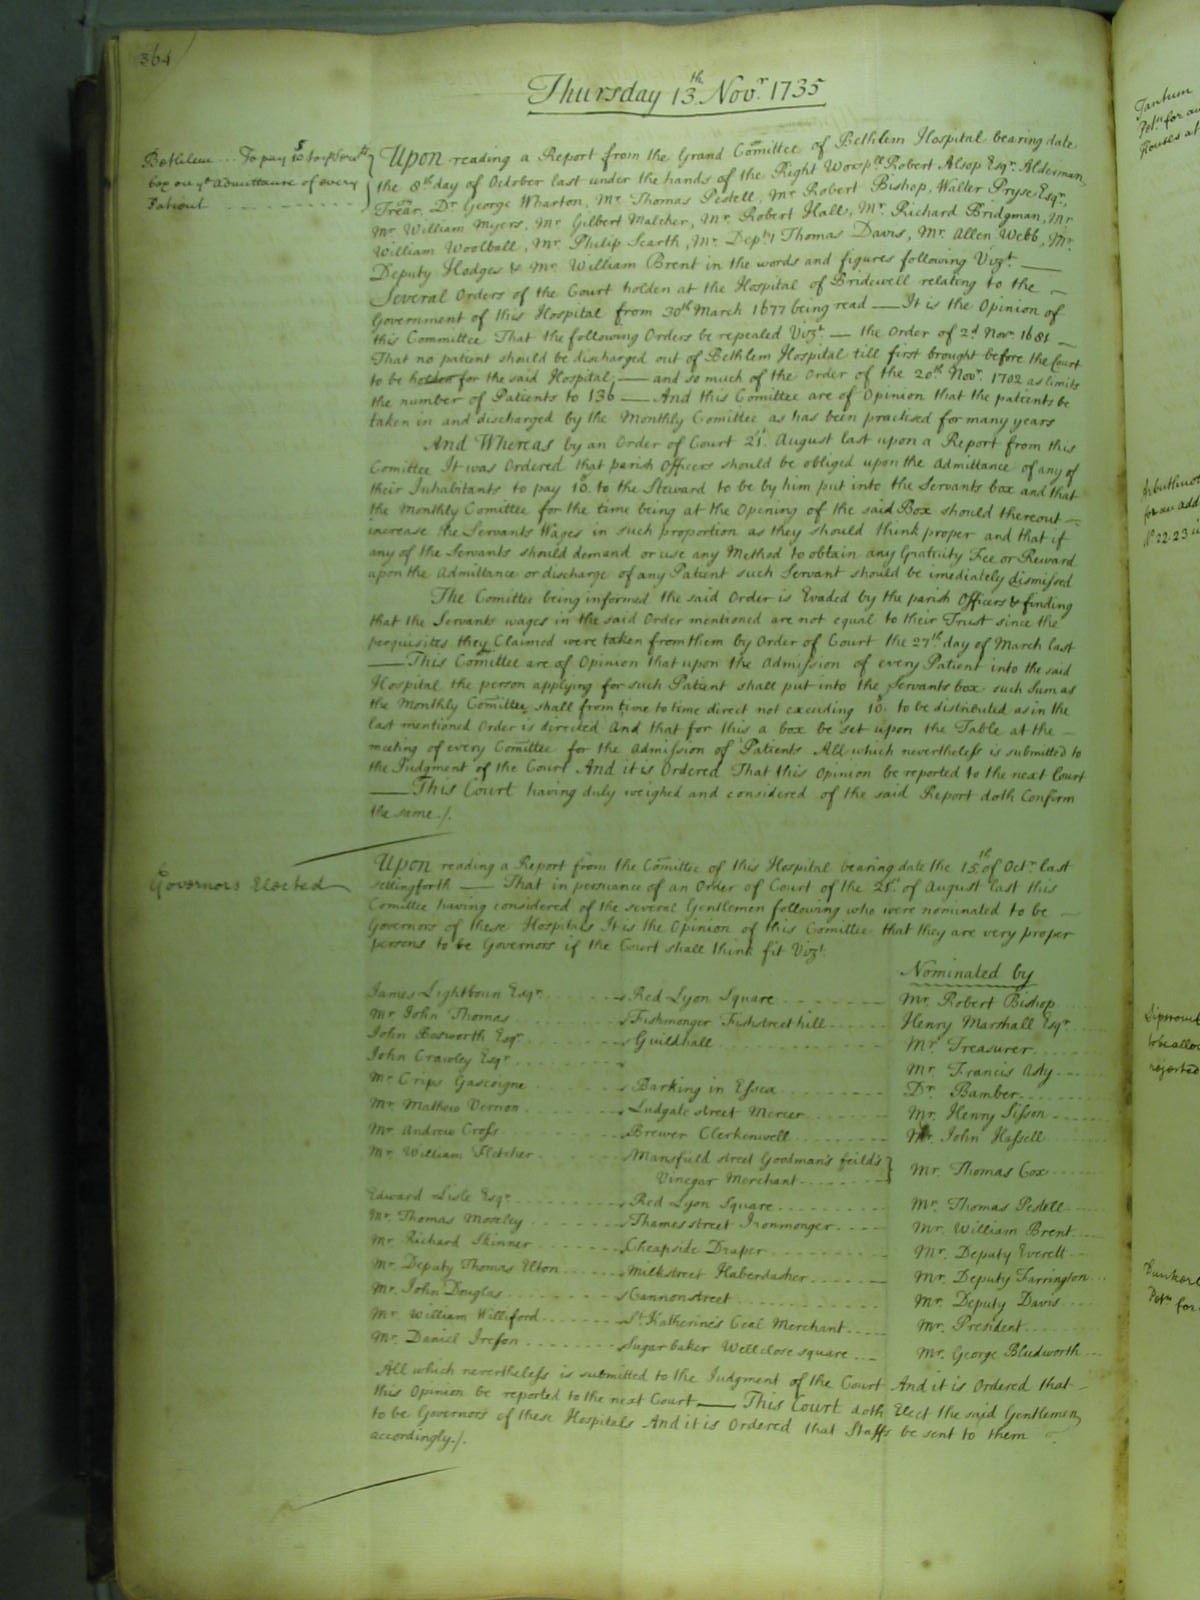 364
Thursday 13th Novr. 1735
Bethlem ... To pay 10s to ye Servts
box on ye Admittance of every
Patient
Upon reading a Report from the Grand Comittee of Bethlem Hospital bearing date
the 8th day of October last under the hands of the Right Worspll Robert Alsop Esqr. Alderman,
Trear, Dr. George Wharton, Mr. Thomas Pestell, Mr Robert Bishop, Walter Pryse Esqr.,
Mr. William Myers, Mr Gilbert Malcher, Mr. Robert Hall, Mr. Richard Bridgman, Mr
William Woolball, Mr. Philip Scarth, Mr. Depty Thomas Davis, Mr. Allen Webb, Mr.
Deputy Hodges & Mr. William Brent in the words and figures following Vizt. —
Several Orders of the Court holden at the Hospital of Bridewell relating to the —
Government of this Hospital from 30th March 1677 being read — It is the Opinion of
this Committee That the following Orders be repealed Vizt — the Order of 2d Novr. 1681 —
That no patient should be discharged out of Bethlem Hospital till first brought before the Court
to be holden for the said Hospital, — and so much of the Order of the 20th Novr. 1702 as limits
the number of Patients to 136 — And this Comittee are of Opinion that the patients be
taken in and discharged by the Monthly Comittee as has been practised for many years
And Whereas by an Order of Court 21st. August last upon a Report from this
Comittee It was Ordered that parish Officers should be obliged upon the Admittance of any of
their Inhabitants to pay 10s. to the Steward to be by him put into the Servants box and that
the Monthly Comittee for the time being at the Opening of the said Box should thereout —
increase the Servants Wages in such proportion as they should think proper and that if
any of the Servants should demand or use any Method to obtain any Gratuity Fee or Reward
upon the Admittance or discharge of any Patient such Servant should be imediately dismissed
The Comittee being informed the said Order is Evaded by the parish Officers & finding
that the Servants wages in the said Order mentioned are not equal to their Trust since the
perquisites they Claimed were taken from them by Order of Court the 27th day of March last
— This Comittee are of Opinion that upon the Admission of every Patient into the said
Hospital the person applying for such Patient shall put into the Servants box such Sum as
the Monthly Comittee shall from time to time direct not exceeding 10s. to be distributed as in the
last mentioned Order is directed And that for this a box be set upon the Table at the —
meeting of every Comittee for the Admission of Patients All which nevertheless is submitted to
the Judgment of the Court And it is Ordered That this Opinion be reported to the next Court
— This Court having duly weighed and considered of the said Report doth Confirm
the same./.
Governors Elected
Upon reading a Report from the Comittee of this Hospital bearing date the 15th of Octr. last
setting forth — That in persuance of an Order of Court of the 21st. of August last this
Comittee having considered of the several Gentlemen following who were nominated to be —
Governors of these Hospitals It is the Opinion of this Comittee that they are very proper
persons to be Governors if the Court shall think fit Vizt.
Nominated by
James Lightboun Esqr. Red Lyon Square Mr. Robert Bishop
Mr John Thomas Fishmonger Fishstreet hill Henry Marshall Esqr.
John Bosworth Esqr. Guildhall Mr. Treasurer
John Crawley Esqr. Mr. Francis Asty
Mr. Crips Gascoigne Barking in Essex Dr. Bamber
Mr. Mathew Vernon Ludgate street Mercer Mr. Henry Sisson
Mr. Andrew Cross Brewer Clerkenwell Mr. John Hassell
Mr. William Fletcher Mansfield street Goodman's feild's
Vinegar Merchant Mr. Thomas Cox
Edward Lisle Esqr. Red Lyon Square Mr. Thomas Pestell
Mr. Thomas Moseley Thames street Ironmonger Mr. William Brent
Mr. Richard Skinner Cheapside Draper Mr. Deputy Everett
Mr. Deputy Thomas Elton Milkstreet Haberdasher Mr. Deputy Farrington
Mr. John Douglas Cannonstreet Mr. Deputy Davis
Mr. William Williford St. Katherine's Coal Merchant Mr. President
Mr. Daniel Sugar baker Wellclose square Mr. George Bludworth
All which nevertheless is submitted to the Judgment of the Court And it is Ordered that —
this Opinion be reported to the next Court — This Court doth Elect the said Gentlemen
to be Governors of these Hospitals And it is Ordered that Staffs be sent to them
accordingly./.
Tantum
Petn. for an
Houses at
Arbuthnot
for an add
No 22. 23
to be allo
rejected
Petn for